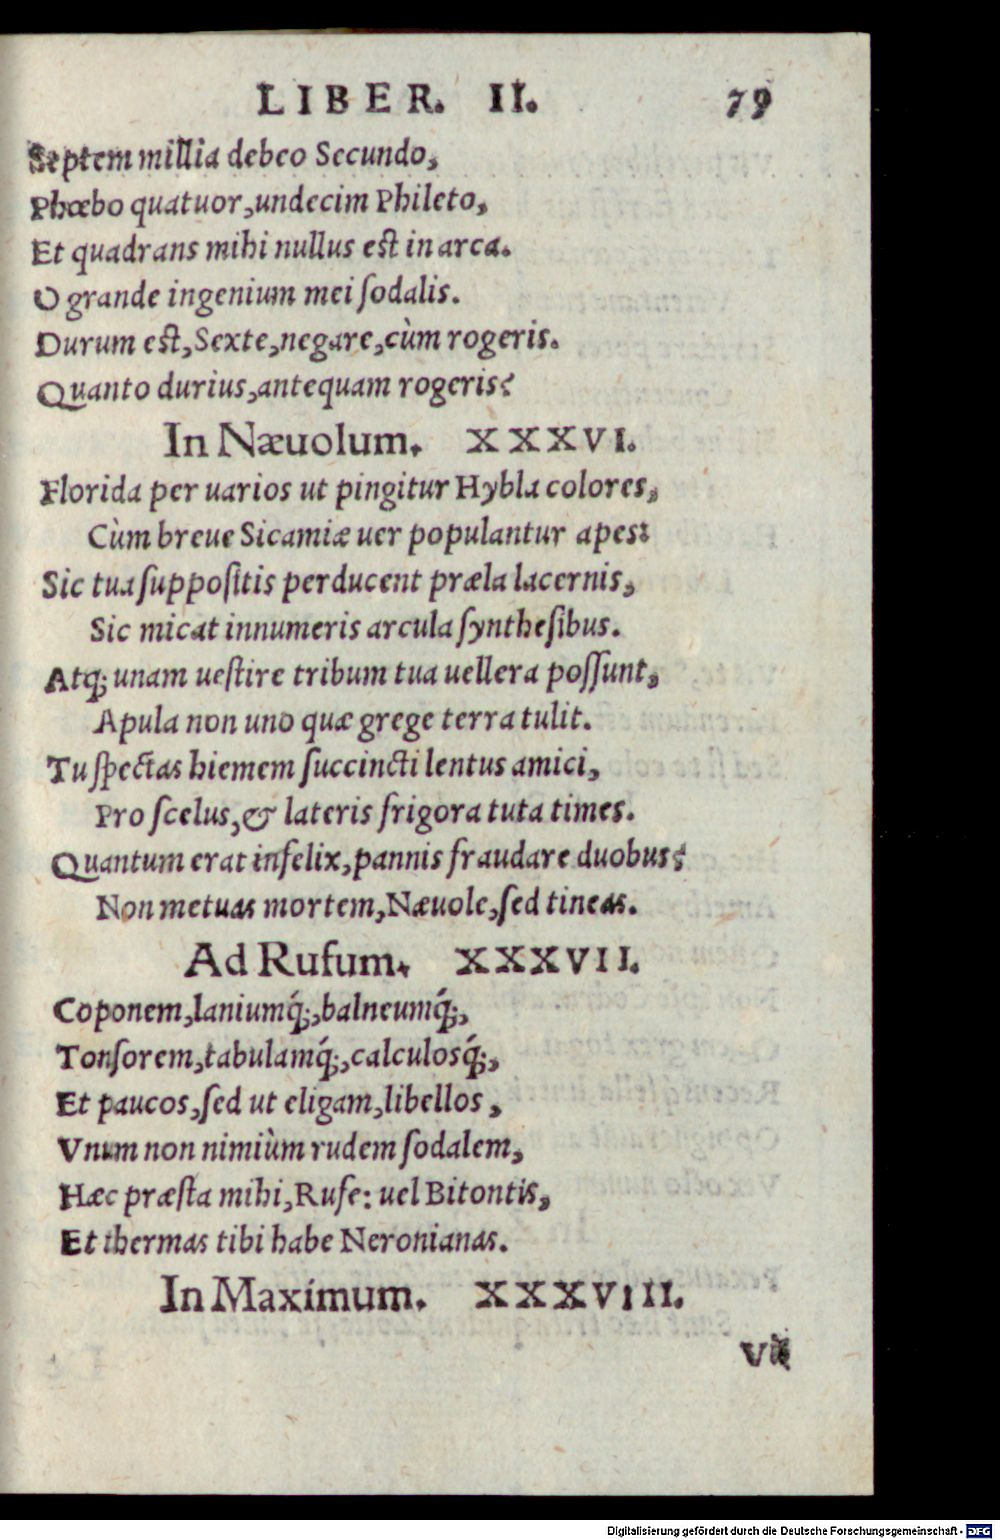 LIBER. II. 79
Septem millia debeo Secundo,
Phœbo quatuor, undecim Phileto,
Et quadrans mihi nullus est in arca.
O grande ingenium mei ſodalis.
Durum est, Sexte, negare, cùm rogeris.
Quanto durius, antequam rogeris?
In Næuolum. XXXVI.
Florida per uarios ut pingitur Hybla colores,
Cùm breue Sicamiæ uer populantur apes:
Sic tua ſuppoſitis perducent præla lacernis,
Sic micat innumeris arcula ſyntheſibus.
Atq; unam ueſtire tribum tua uellera poſſunt,
Apula non uno quæ grege terra tulit.
Tu ſpectas hiemem ſuccincti lentus amici,
Pro ſcelus, & lateris frigora tuta times.
Quantum erat infelix, pannis fraudare duobus?
Non metuas mortem, Næuole, ſed tineas.
Ad Rufum. XXXVII.
Coponem, laniumq́;, balneumq́;,
Tonſorem, tabulamq́;, calculosq́;,
Et paucos, ſed ut eligam, libellos,
Vnum non nimiùm rudem ſodalem,
Hæc præſta mihi, Rufe: uel Bitontis,
Et thermas tibi habe Neronianas.
In Maximum. XXXVIII.
Digitalisierung gefördert durch die Deutsche Forschungsgemeinschaft - DFG